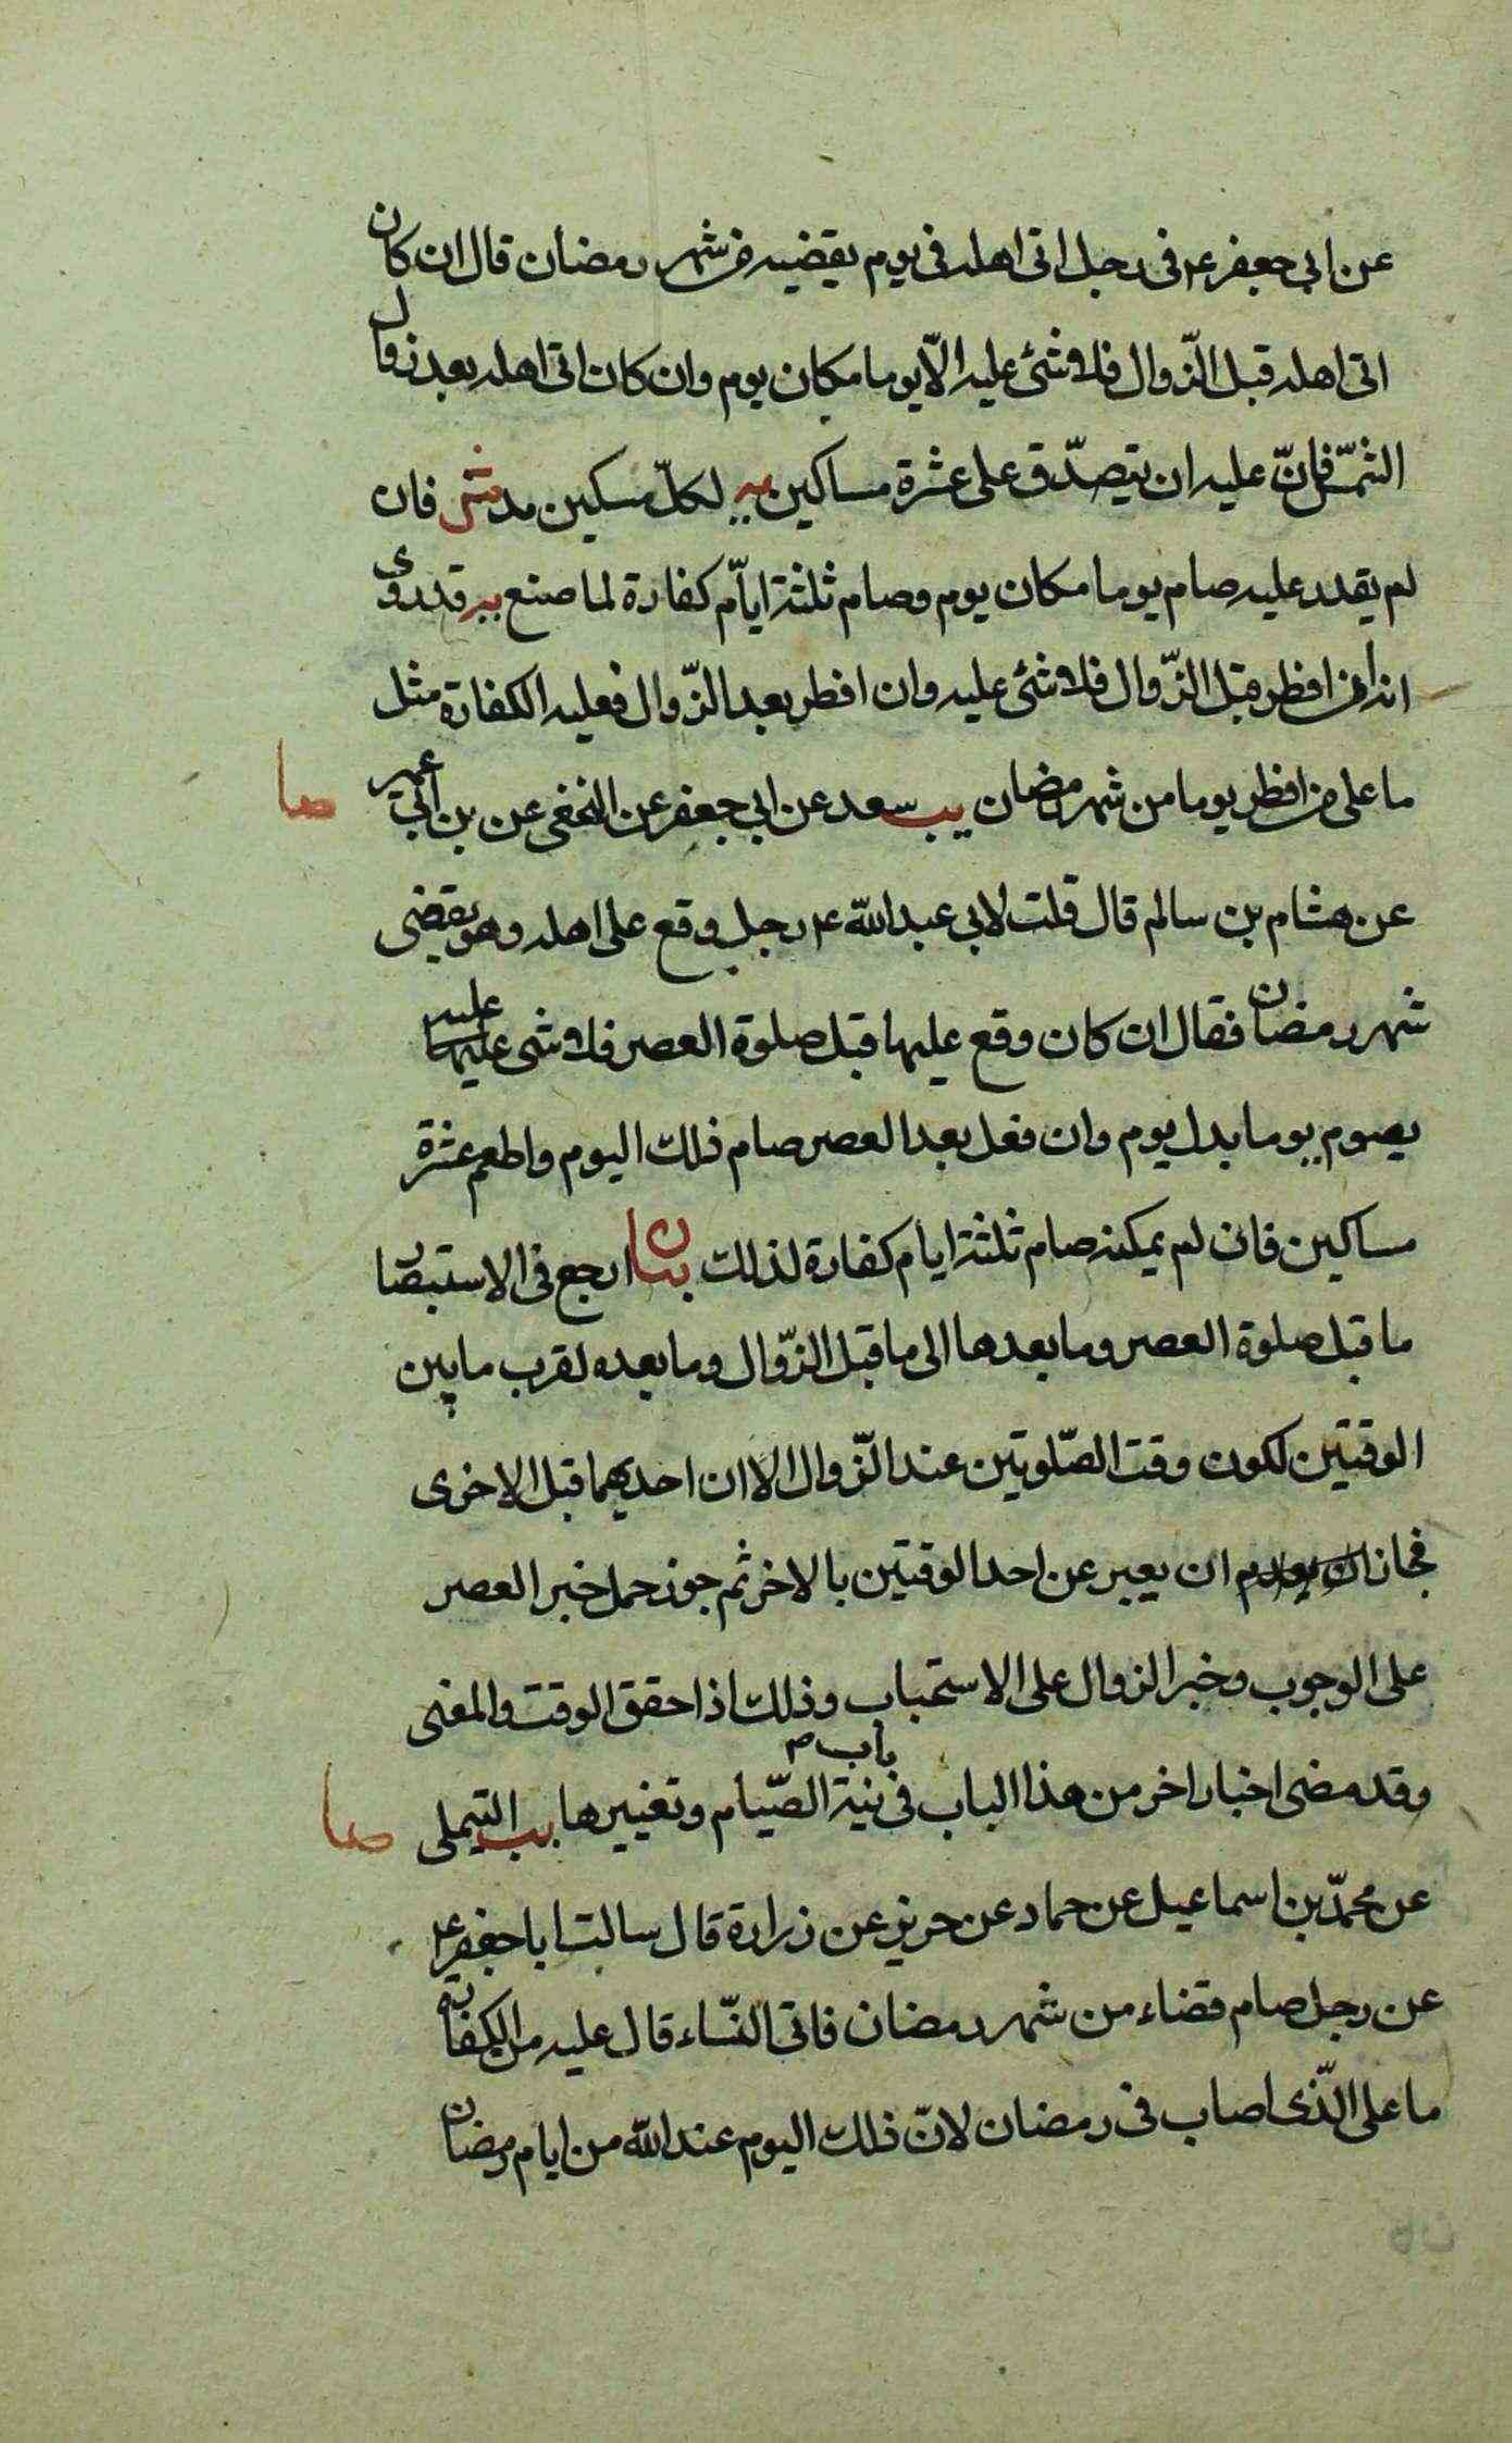 عن ابي جعفر ع في رجل اتى اهله في يوم يقضيه من شهر رمضان قال ان كان
اتى اهله قبل الزّوال فلا شئ عليه الّا يوما مكان يوم وان كان اتى اهله بعد زوال
الشمس فانّ عليه ان يتصدّق على عشرة مساكين يه لكلّ مسكين مد ش فان
لم يقدر عليه صام يوما مكان يوم وصام ثلثة ايّام كفارة لما صنع يه قد روى
انه ان افطر قبل الزّوال فلا شئ عليه وان افطر بعد الزّوال فعليه الكفارة مثل
ما على من افطر يوما من شهر رمضان يب سعد عن ابي جعفر عن النخعى عن بن ابي عمير صا
عن هشام بن سالم قال قلت لابي عبد الله ع رجل وقع على اهله وهو يقضى
شهر رمضان فقال ان كان وقع عليها قبل صلوة العصر فلا شئ عليها عليه
يصوم يوما بدل يوم وان فعل بعد العصر صام ذلك اليوم واطعم عشرة
مساكين فان لم يمكنه صام ثلثة ايام كفارة لذلك بيان ارجع في الاستبصار
ما قبل صلوة العصر وما بعدها الى ما قبل الزّوال وما بعده لقرب ما بين
الوقتين لكون وقت الصّلوتين عند الزّوال الا ان احديهما قبل الاخرى
فجاز ان يعبر عن احد الوقتين بالاخر ثم جوز حمل خبر العصر
على الوجوب وخبر الزوال على الاستحباب وذلك اذا حقق الوقت والمعنى
وقد مضى اخبار اخر من هذا الباب في باب نية الصّيام وتغييرها يب التيملى صا
عن محمّد بن اسماعيل عن حماد عن حريز عن زرارة قال سالت ابا جعفر ع
عن رجل صام قضاء من شهر رمضان فاتى النّساء قال عليه من الكفارة
ما على الّذى اصاب في رمضان لانّ ذلك اليوم عند الله من ايام رمضان